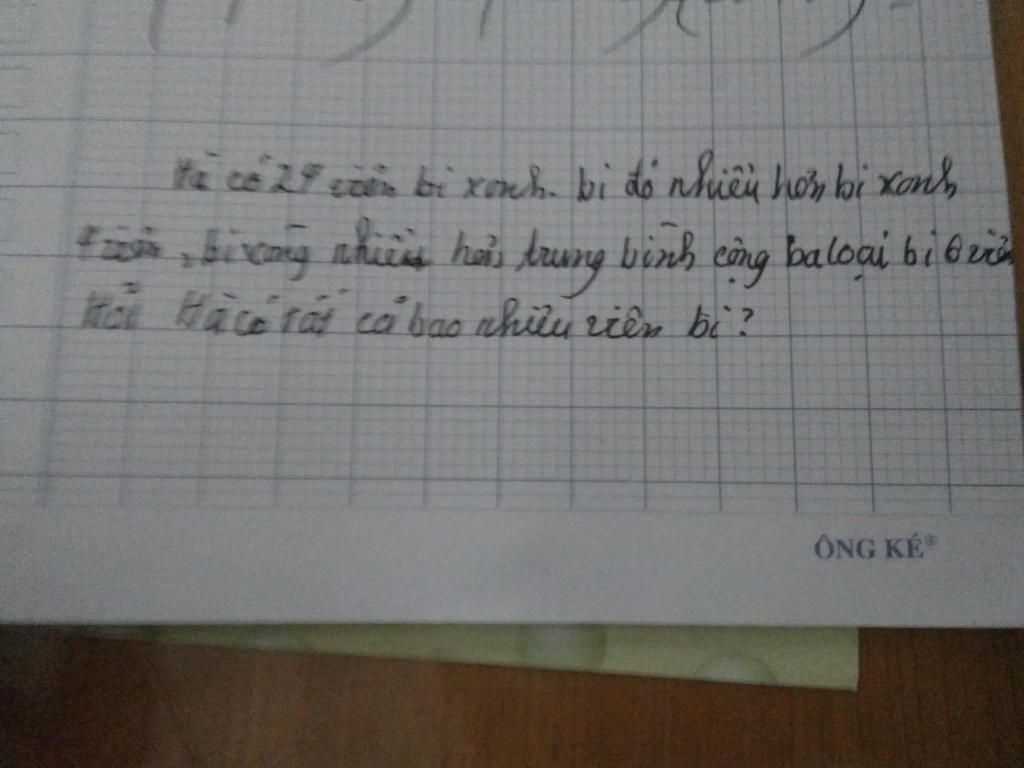 Hà có 24 viên bi xanh. bi đỏ nhiều hơn bi xanh
viên, bi vàng nhiều hơn trung bình cộng ba loại bi 6 viên
Hỏi Hà có tất cả bao nhiêu viên bi?
ÔNG KÉ®